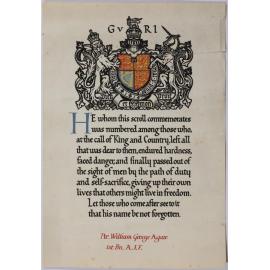 G V R I
HE whom this scroll commemorates
was numbered among those who,
at the call of King and Country, left all
that was dear to them, endured hardness,
faced danger, and finally passed out of
the sight of men by the path of duty
and self-sacrifice, giving up their own
lives that others might live in freedom.
Let those who come after see to it
that his name be not forgotten.
Pte. William George Agar
1st Bn. A.I.F.